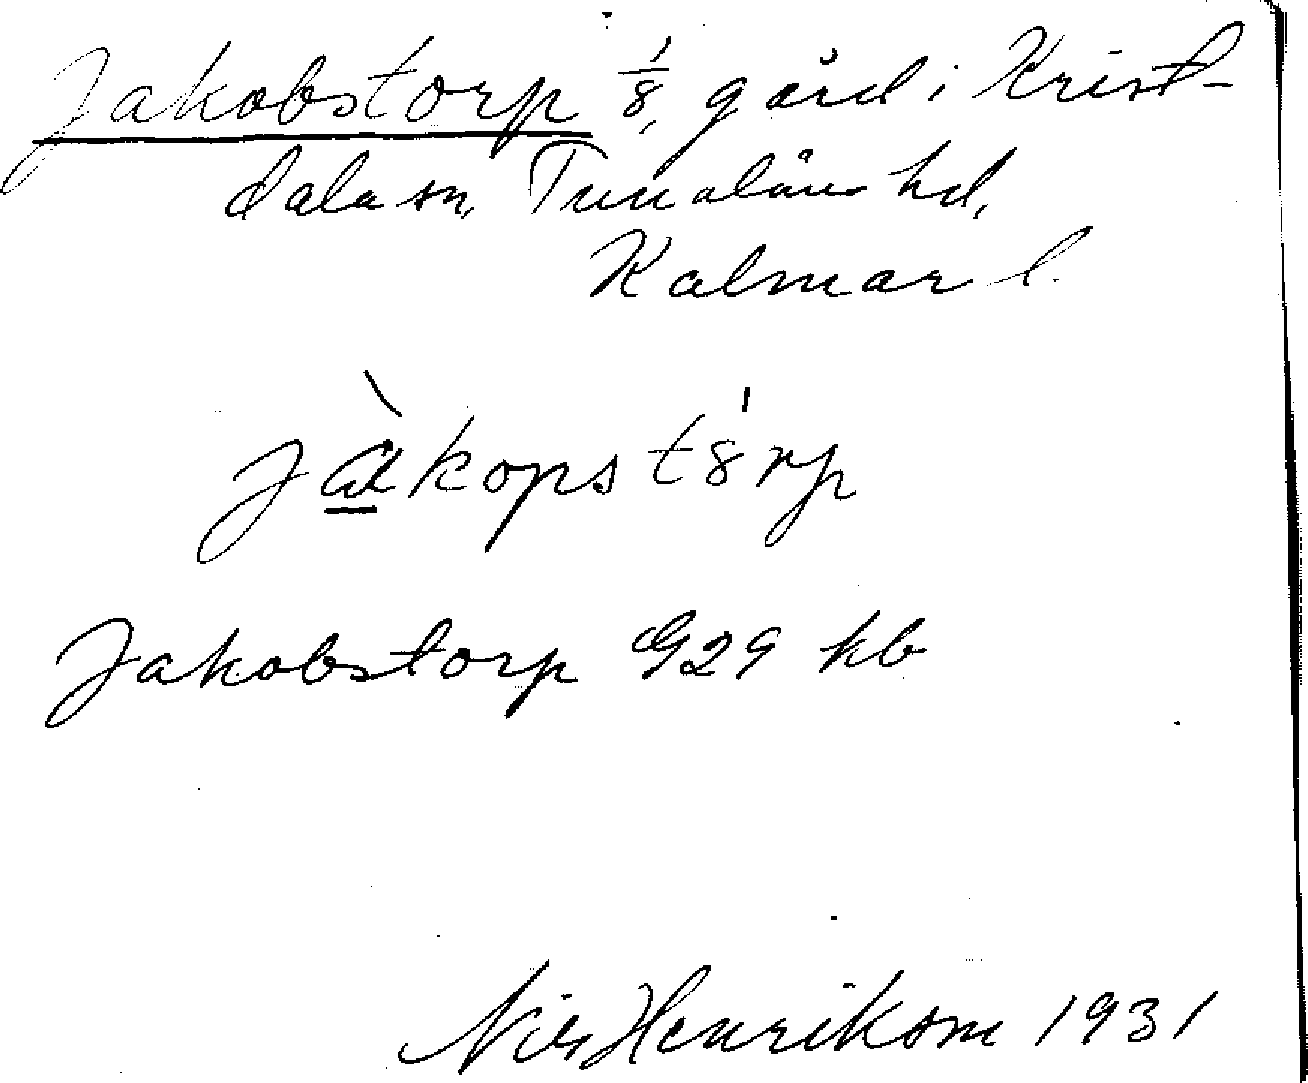 Jakobstorp 1/8, gård i Krist-
dala sn, Tunaläns hd,
Kalmar l.
jàkopstórp
Jakobstorp G29 kb
Nils Henrikson 1931